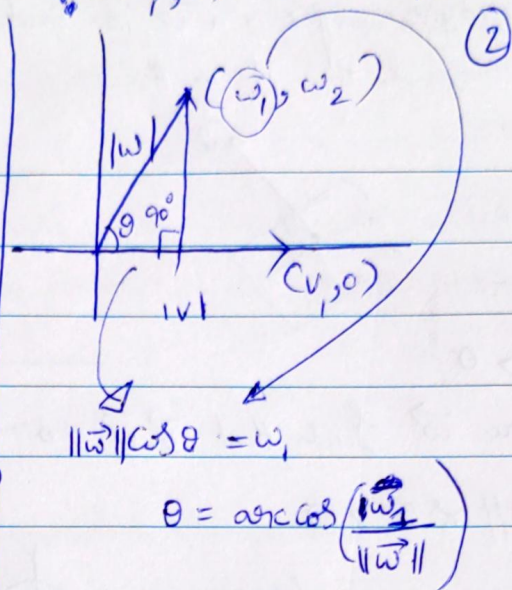 ②
(ω₁, ω₂)
|w|
θ 90°
(v₁, 0)
|v|
||w⃗|| cos θ = ω₁
θ = arc cos (w⃗₁ / ||w⃗||)